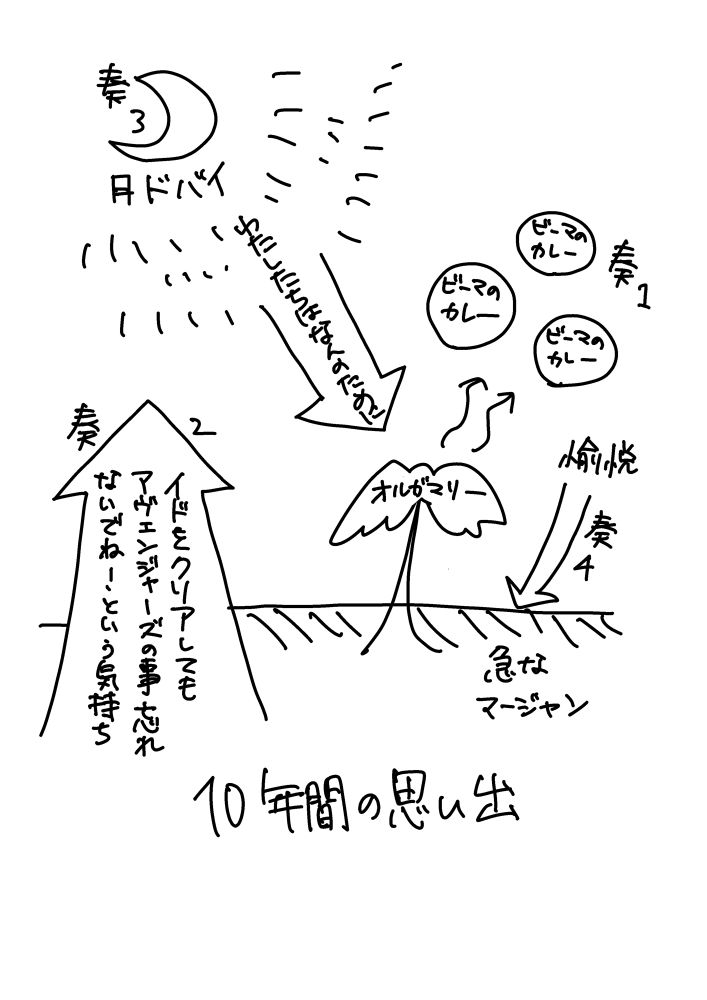 奏
3
月ドバイ
わたしたちはなんのために
ビーマの
カレー
ビーマの
カレー
ビーマの
カレー
奏
1
奏
2
イドをクリアしても
アヴェンジャーズの事忘れ
ないでね!という気持ち
オルガマリー
愉悦
奏
4
急な
マージャン
10年間の思い出